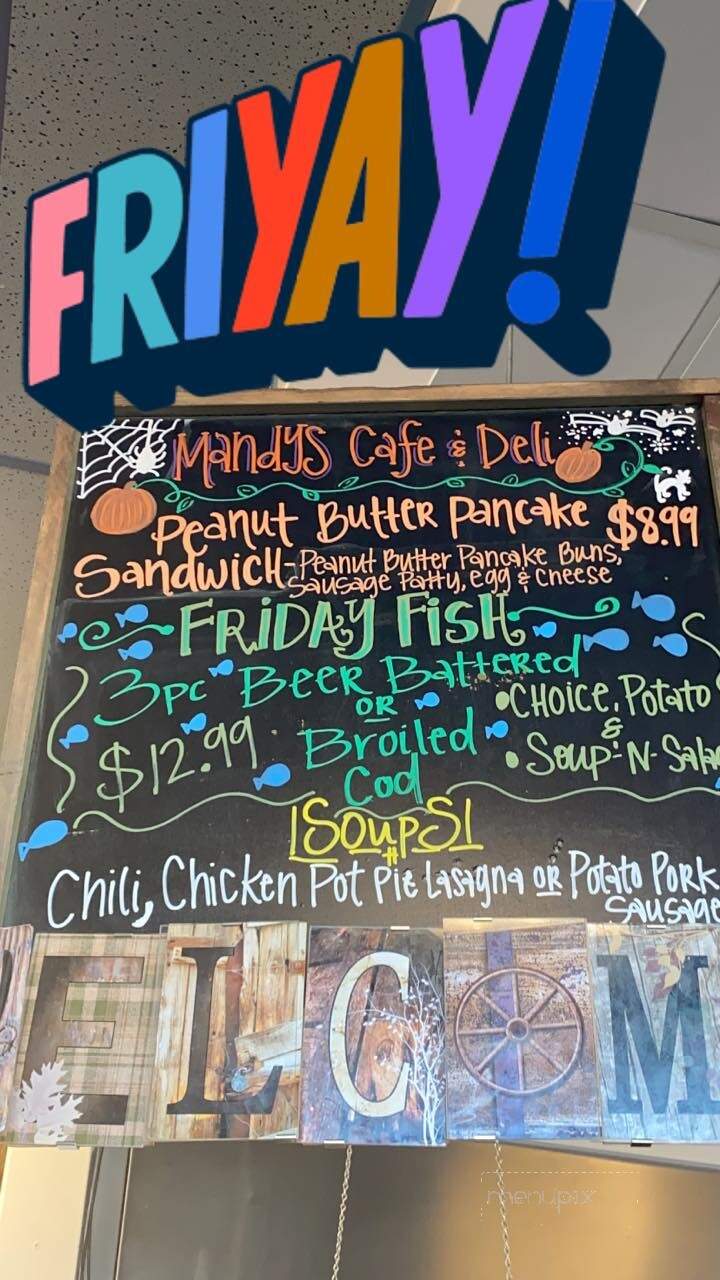 FRIYAY!
Mandys Cafe & Deli
Peanut Butter Pancake $8.99
Sandwich - Peanut Butter Pancake Buns,
Sausage Patty, egg & cheese
FRiDAY FiSH
3pc Beer Battered
OR
$12.99 Broiled
Cod
• CHOICE, Potato
&
• Soup-N-Sala
Soups
Chili, Chicken Pot Pie Lasagna or Potato Pork
Sausage
ELCOM
menupix